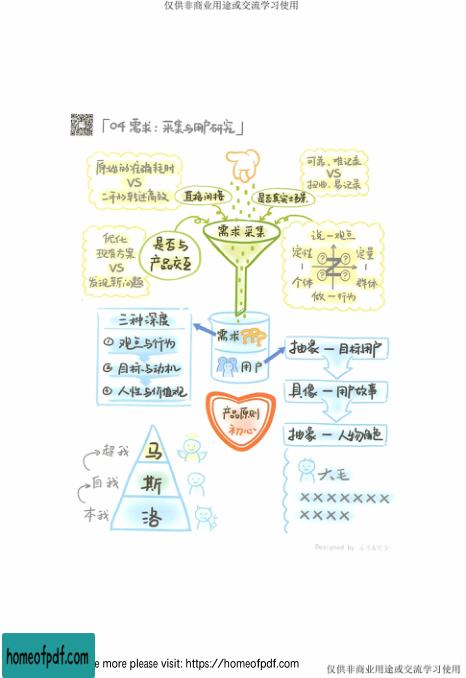 仅供非商业用途或交流学习使用
「04 需求：采集与用户研究」
原始的准确耗时
VS
二手的转述高效
直接间接
是否真实场景
可靠、难记录
VS
扭曲、易记录
需求采集
优化
现有方案
VS
发现新问题
是否与
产品交互
说—观点
定性 定量
个体 群体
做—行为
? ?
? ?
三种深度
① 观点与行为
② 目标与动机
③ 人性与价值观
需求
用户
抽象—目标用户
具像—用户故事
抽象—人物角色
产品原则
初心
超我 马
自我 斯
本我 洛
大毛
×××××××
××××
Designed by
homeofpdf.com
e more please visit: https://homeofpdf.com
仅供非商业用途或交流学习使用